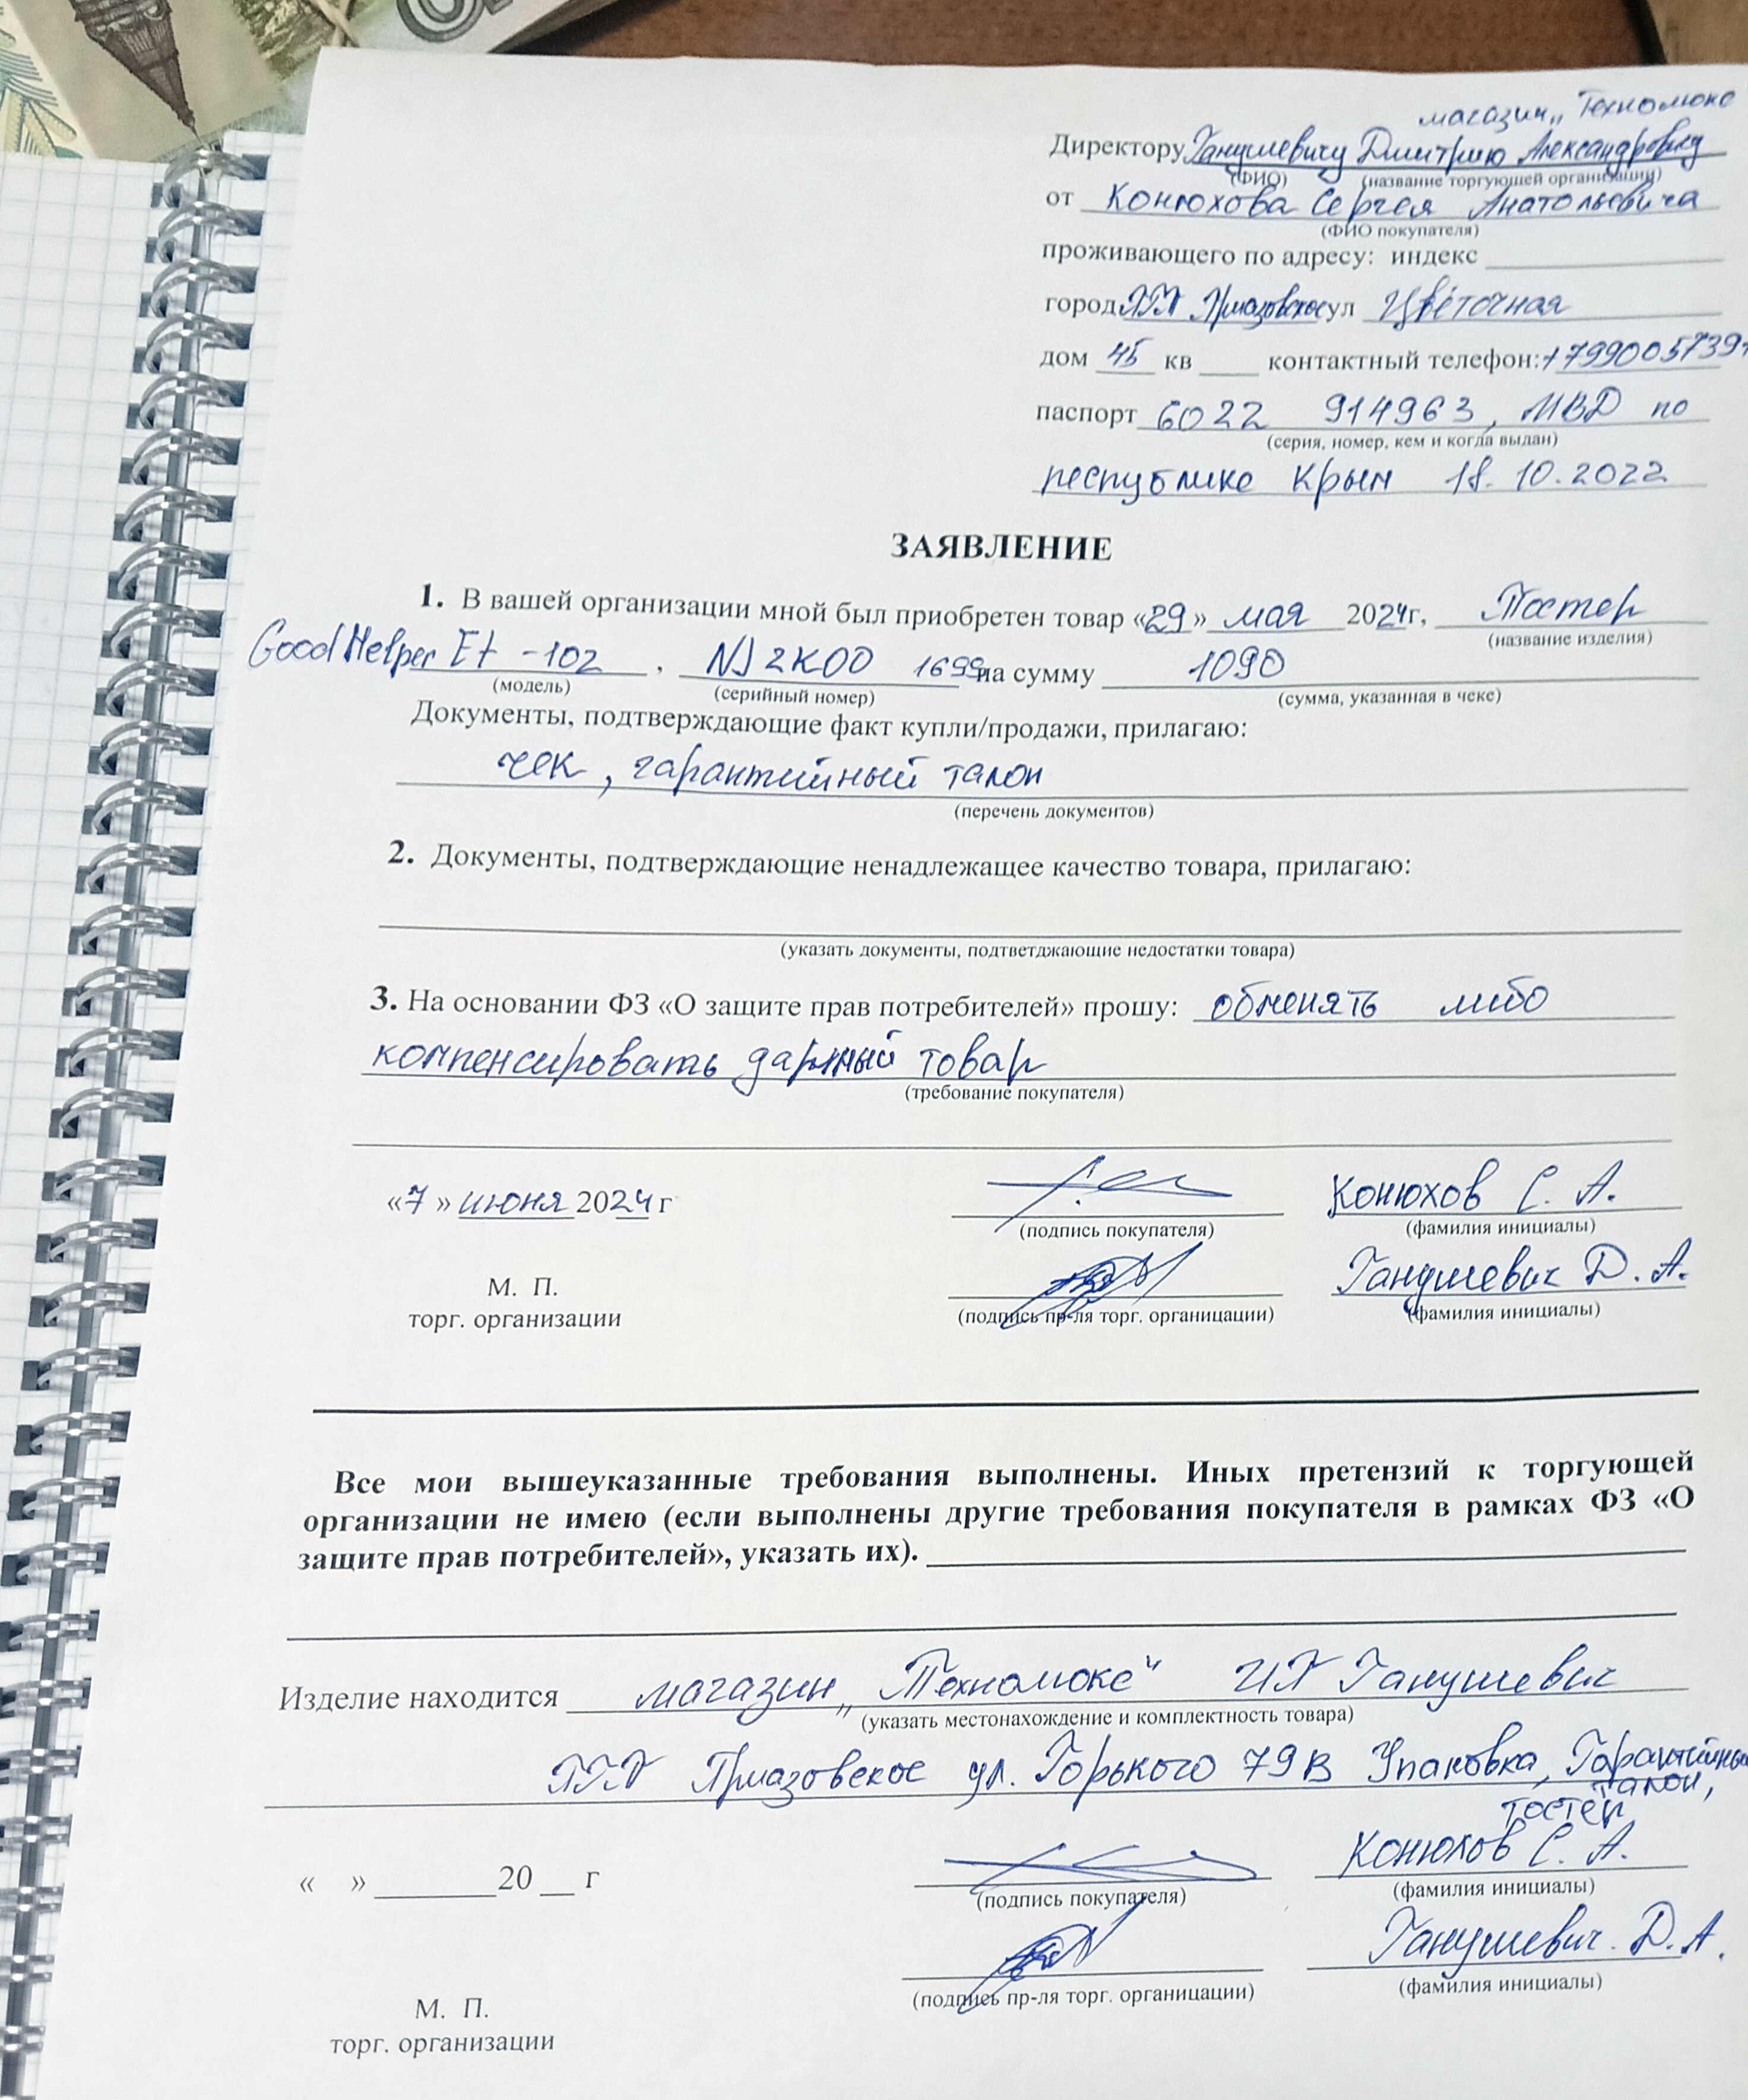 магазин „Техномюкс
Директору Ганушевичу Дмитрию Александровичу
(ФИО) (название торгующей организации)
от Конюхова Сергея Анатольевича
(ФИО покупателя)
проживающего по адресу: индекс
город ПГТ Приазовское ул Цветочная
дом 45 кв контактный телефон: +799005739
паспорт 6022 914963, МВД по
(серия, номер, кем и когда выдан)
республике Крым 18.10.2022
ЗАЯВЛЕНИЕ
1. В вашей организации мной был приобретен товар «29» мая 2024г, Тостер
(название изделия)
GoodHelper Et-102, NJ2K00 1699 на сумму 1090
(модель) (серийный номер) (сумма, указанная в чеке)
Документы, подтверждающие факт купли/продажи, прилагаю:
чек, гарантийный талон
(перечень документов)
2. Документы, подтверждающие ненадлежащее качество товара, прилагаю:
(указать документы, подтветджающие недостатки товара)
3. На основании ФЗ «О защите прав потребителей» прошу: обменять либо
компенсировать данный товар
(требование покупателя)
«7» июня 2024 г Конюхов С. А.
(подпись покупателя) (фамилия инициалы)
М. П. Ганушевич Д. А.
торг. организации (подпись пр-ля торг. органицации) (фамилия инициалы)
Все мои вышеуказанные требования выполнены. Иных претензий к торгующей
организации не имею (если выполнены другие требования покупателя в рамках ФЗ «О
защите прав потребителей», указать их).
Изделие находится магазин „Техномюкс" ИП Ганушевич
(указать местонахождение и комплектность товара)
ПГТ Приазовское ул. Горького 79В Упаковка, Гарантийный
талон,
тостер
Конюхов С. А.
« » 20 г
(подпись покупателя) (фамилия инициалы)
Ганушевич Д. А.
(подпись пр-ля торг. органицации) (фамилия инициалы)
М. П.
торг. организации